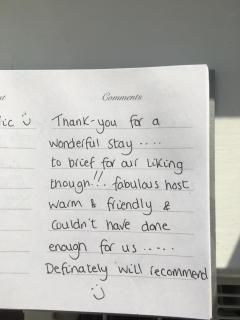 Comments
ic
Thank-you for a
wonderful stay ....
to brief for our liking
though!!. fabulous host
warm & friendly &
couldn't have done
enough for us .....
Definately will recommend